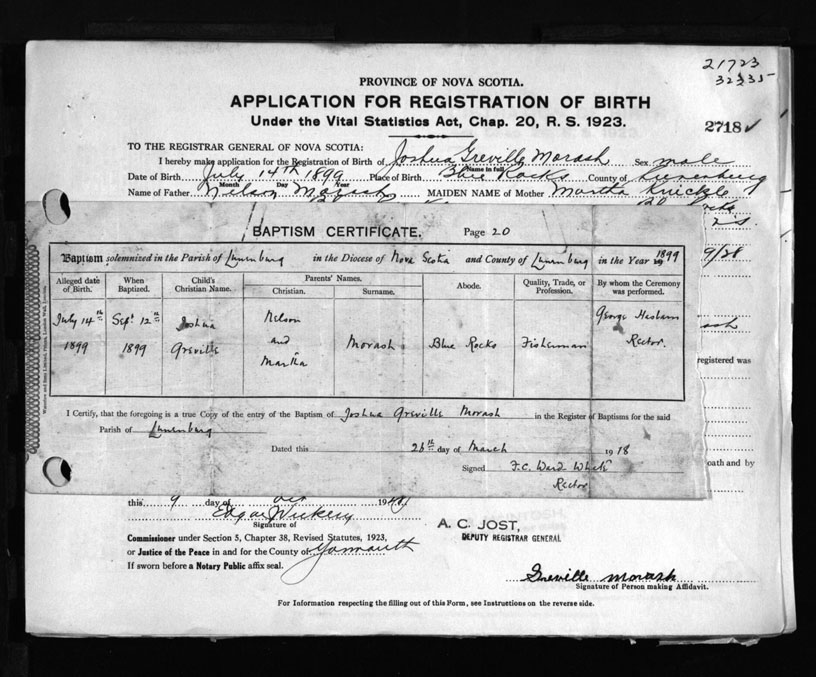 21723
PROVINCE OF NOVA SCOTIA.
APPLICATION FOR REGISTRATION OF BIRTH
Under the Vital Statistics Act, Chap. 20, R. S. 1923.
2718 ✓
TO THE REGISTRAR GENERAL OF NOVA SCOTIA:
I hereby make application for the Registration of Birth of Joshua Greville Morash Sex male
(Name in full)
Date of Birth July 14th 1899 Place of Birth Blue Rocks County of Lunenburg
Month Day Year
Name of Father Nelson Morash MAIDEN NAME of Mother Martha Knickle
BAPTISM CERTIFICATE. Page 20
Baptism solemnized in the Parish of Lunenburg in the Diocese of Nova Scotia and County of Lunenburg in the Year 1899
9/28
Alleged date of Birth. When Baptized. Child's Christian Name. Parents' Names. Christian. Surname. Abode. Quality, Trade, or Profession. By whom the Ceremony was performed.
July 14th 1899 Sept 12th 1899 Joshua Greville Nelson and Martha Morash Blue Rocks Fisherman George Haslam Rector.
registered was
I Certify, that the foregoing is a true Copy of the entry of the Baptism of Joshua Greville Morash in the Register of Baptisms for the said
Parish of Lunenburg
Dated this 26th day of March 1918
oath and by
Signed F.C. Ward Whate
Rector
this 9 day of Oct 19
Edgar Vickery
Signature of
A. C. JOST,
DEPUTY REGISTRAR GENERAL
Commissioner under Section 5, Chapter 38, Revised Statutes, 1923,
or Justice of the Peace in and for the County of Yarmouth
If sworn before a Notary Public affix seal.
Greville Morash
Signature of Person making Affidavit.
For Information respecting the filling out of this Form, see Instructions on the reverse side.